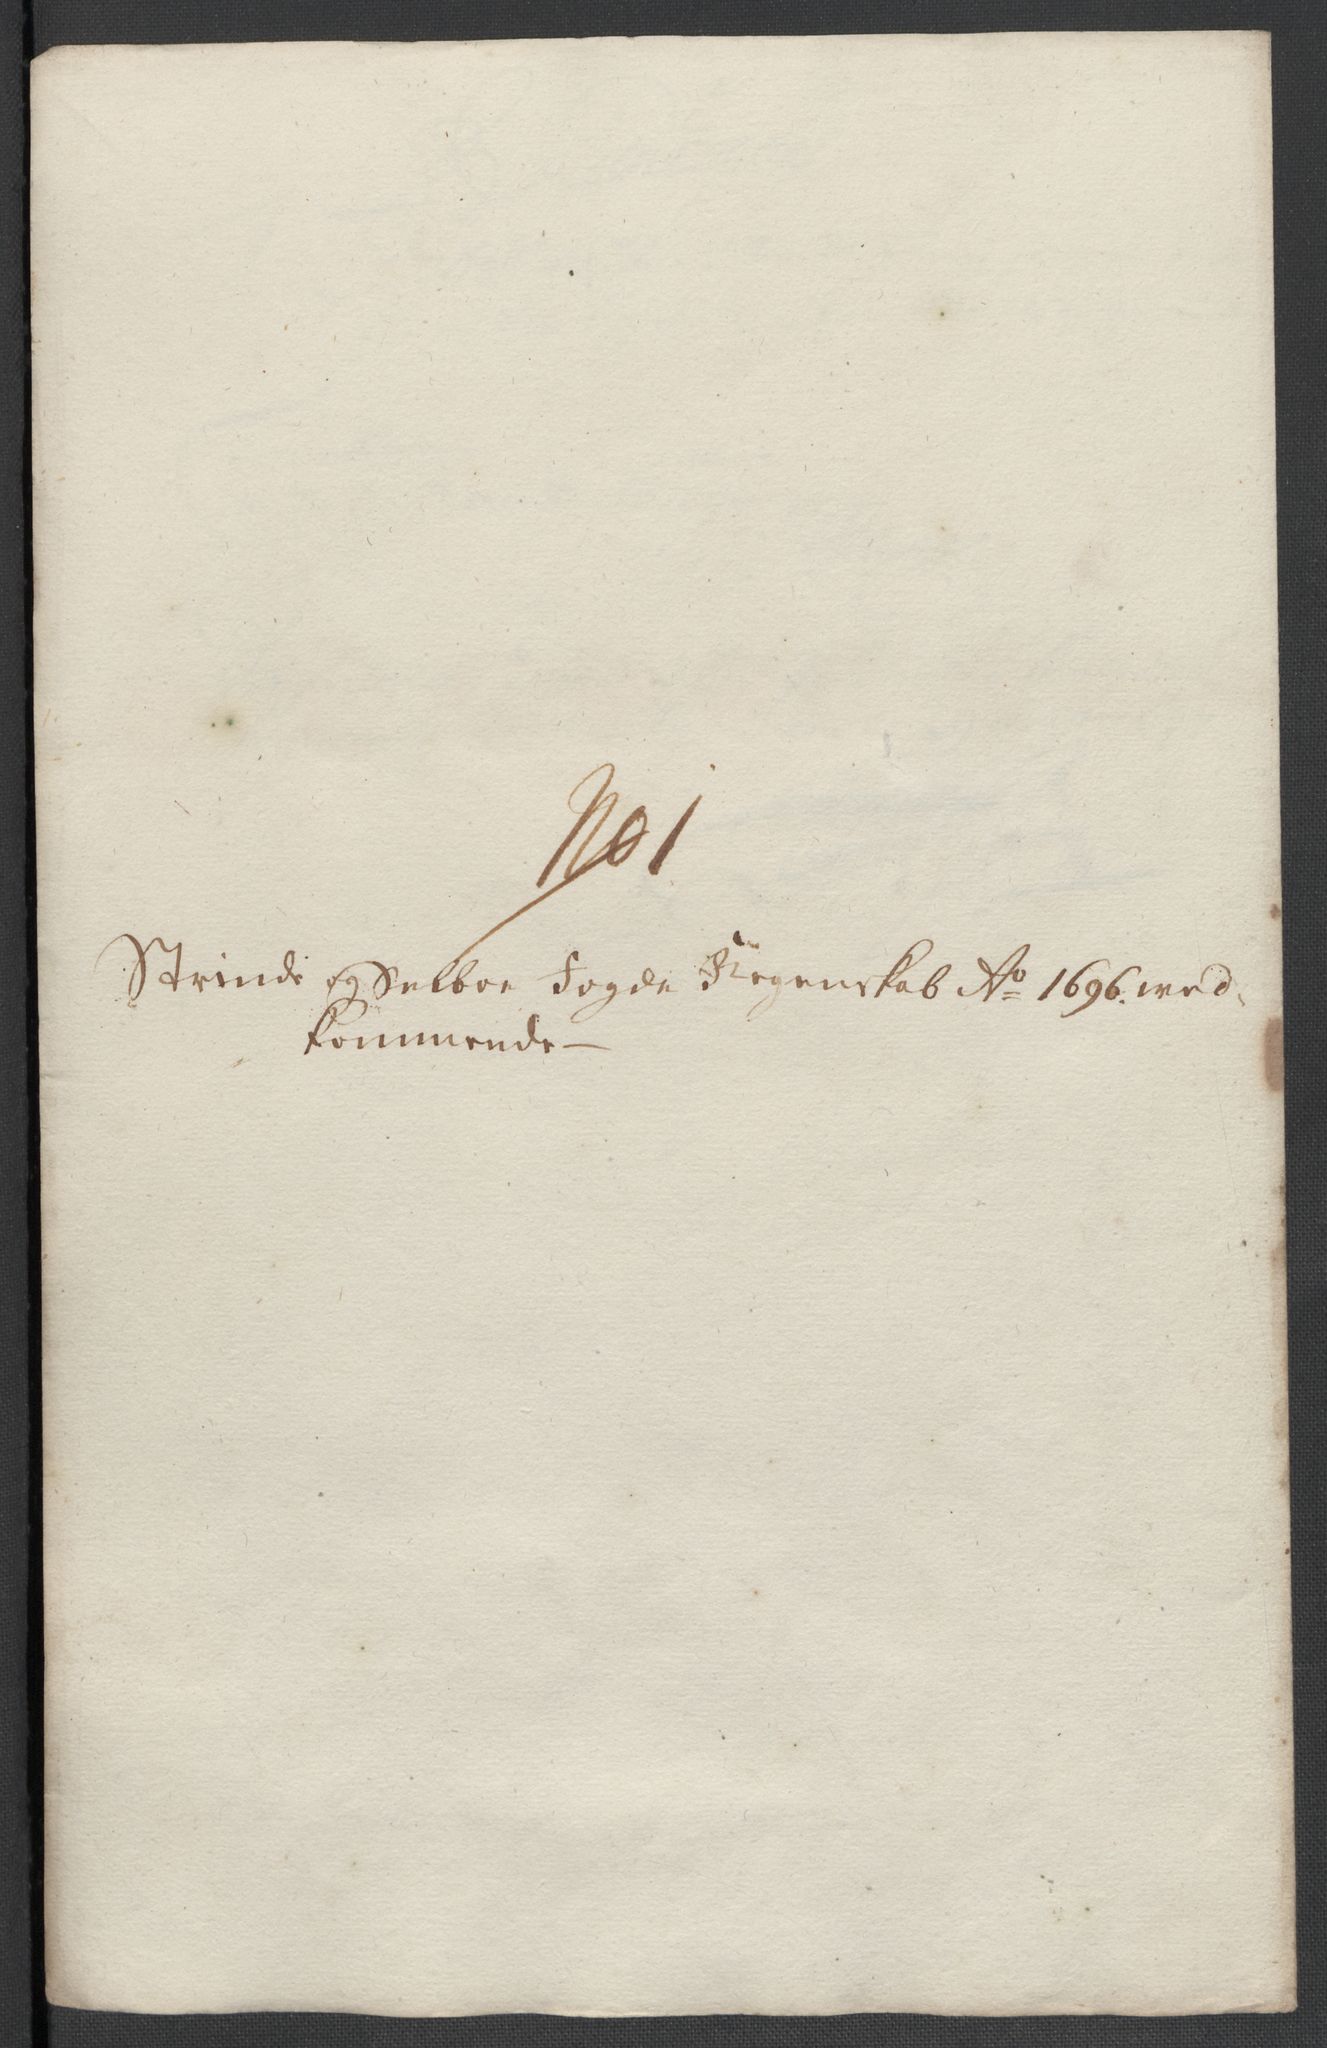 No 1
Strinde og Selboe Fogde Regenskab Ao 1696. wed-
kommende —